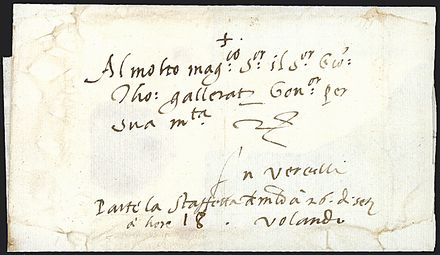 +
Al molto mag.co S.or il S.or Gio:
Tho: gallerat Gov.or per
sua m.ta
In vercelli
Parte la staffetta a 26. di
à hore 18. volando